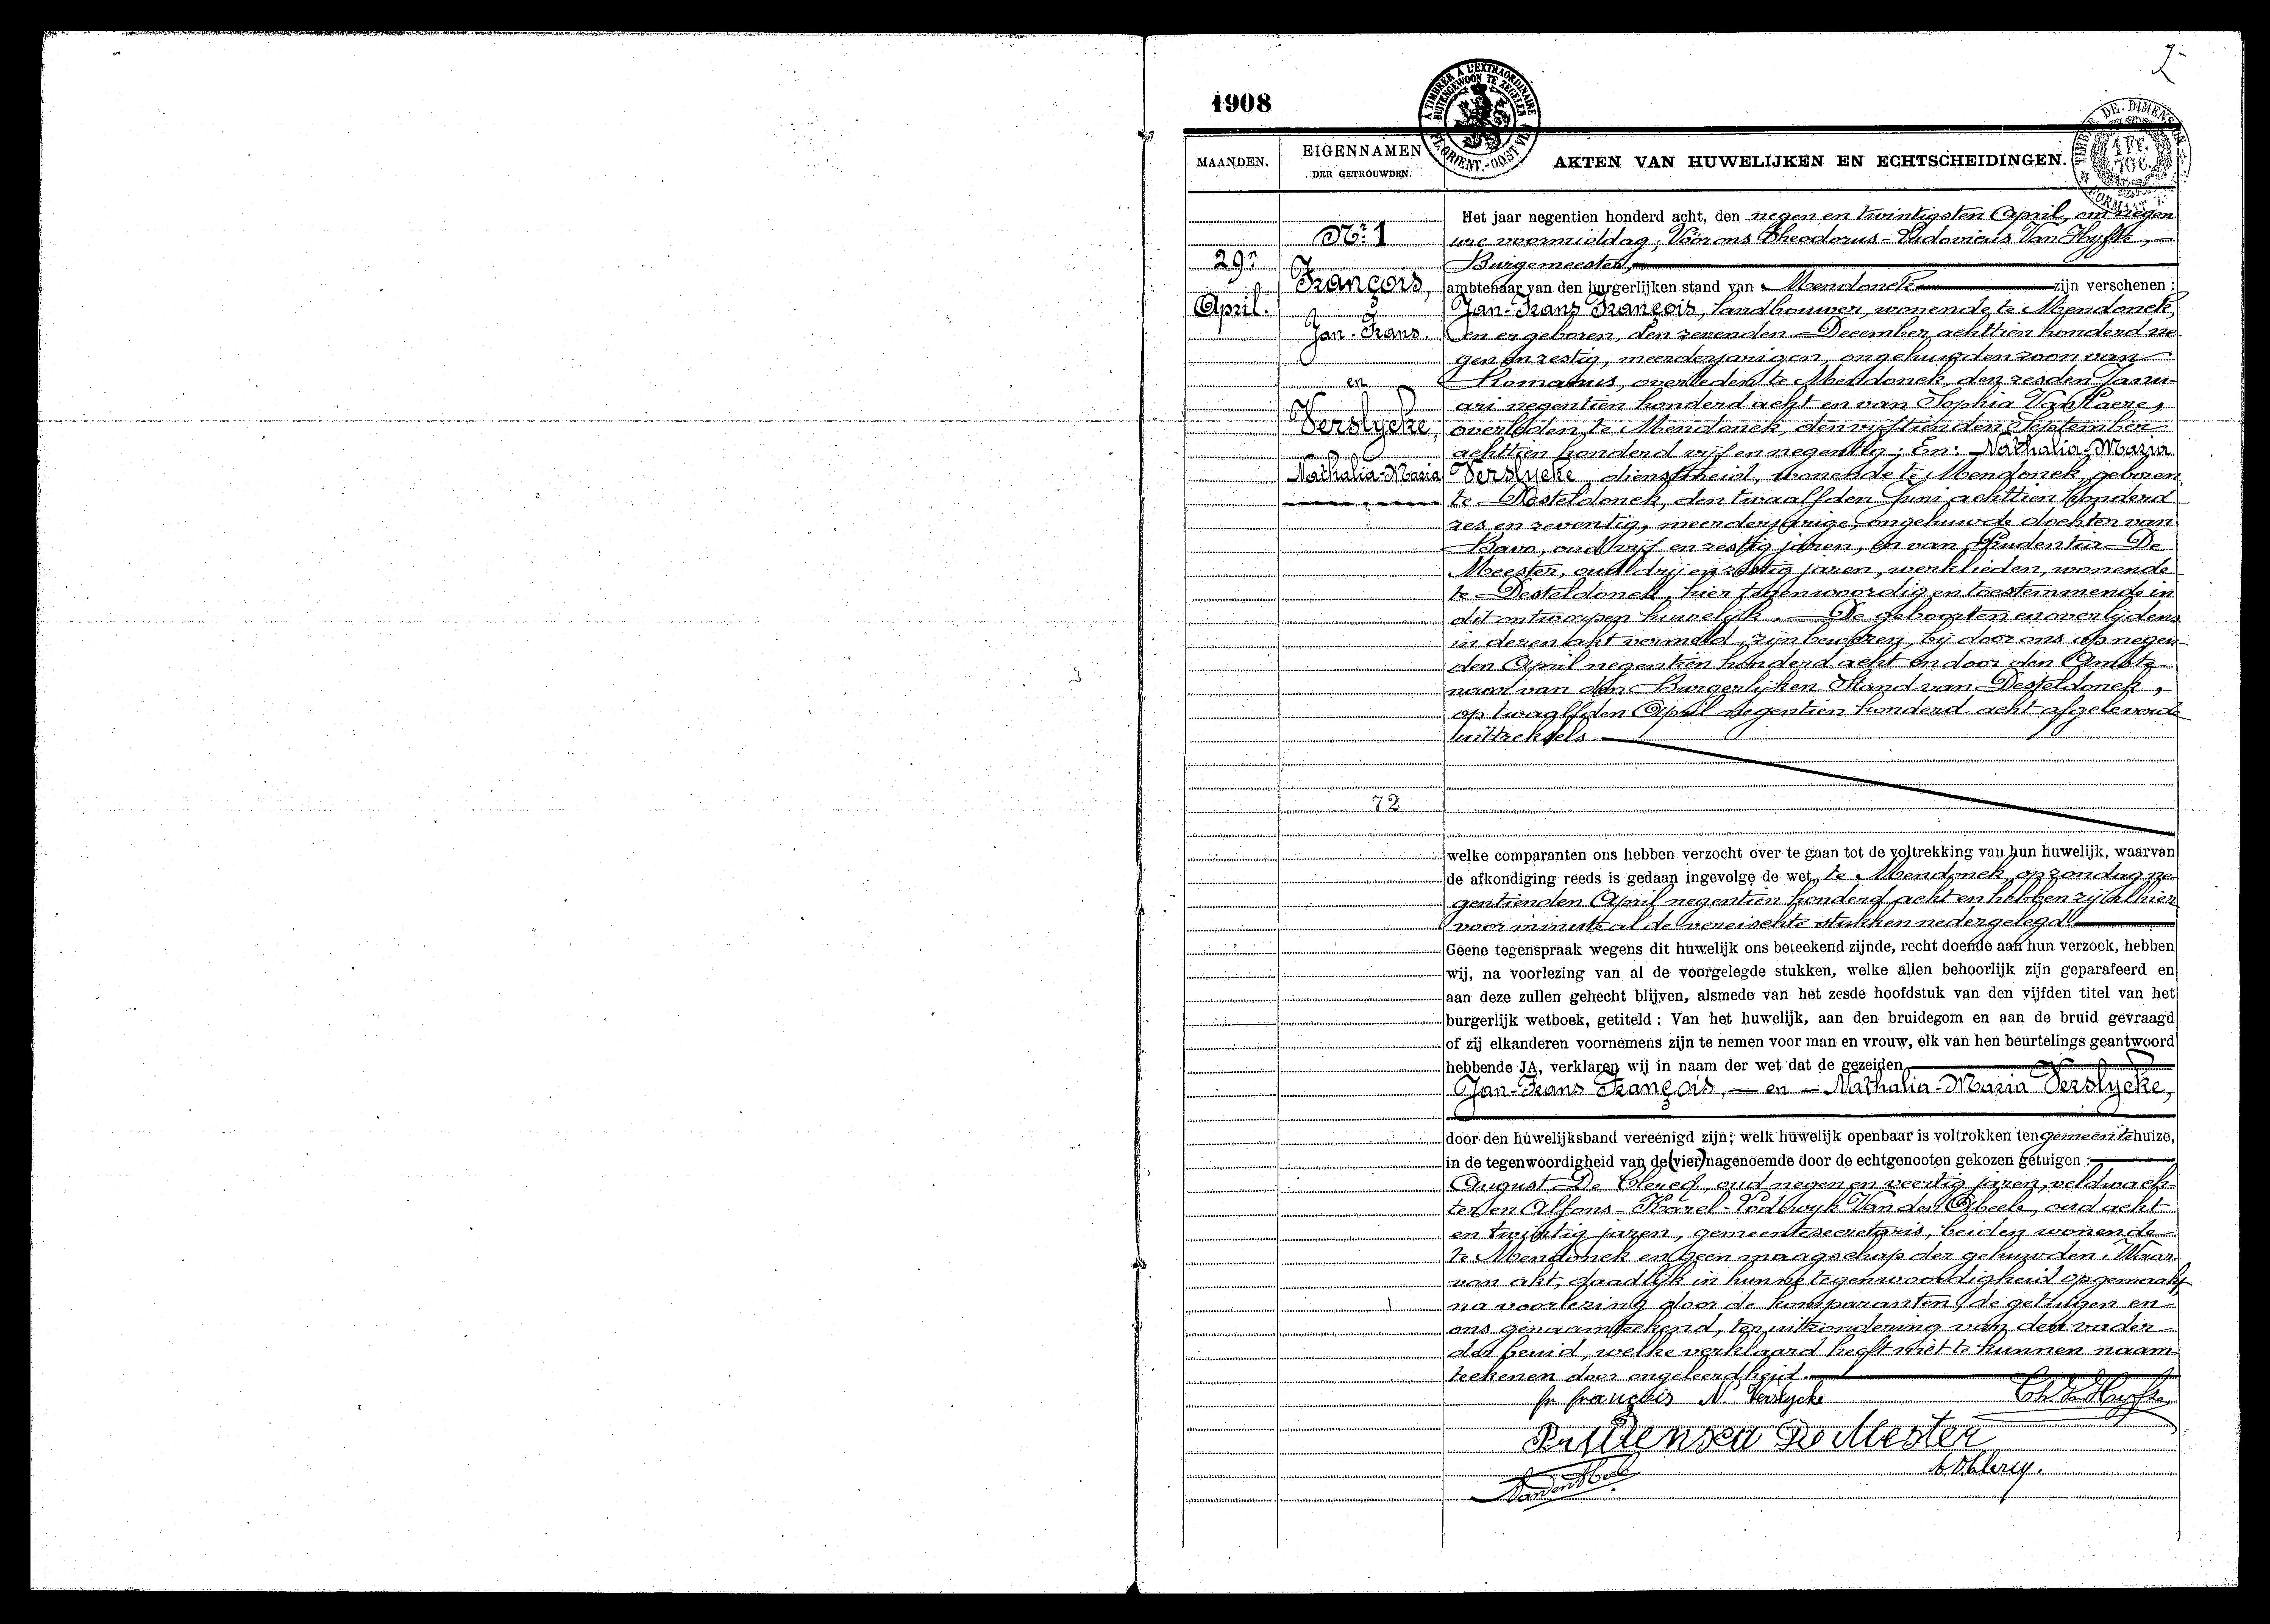 2
1908
A TIMBRER A L'EXTRAORDINAIRE
BUITENGEWOON TE ZEGELEN
FL. ORIENT.-OOST VL.
TIMBRE DE DIMENSION
1 Fr.
70 c.
FORMAAT
MAANDEN.
EIGENNAMEN
DER GETROUWDEN.
AKTEN VAN HUWELIJKEN EN ECHTSCHEIDINGEN.
Nr. 1
29n
April.
François,
Jan-Frans.
en
Verslycke,
Nathalia-Maria
72
Het jaar negentien honderd acht, den negen en twintigsten April, om negen
ure voormiddag, Vóór ons Theodorus-Ludovicus Van Hyfte,
Burgemeester,
ambtenaar van den burgerlijken stand van Mendonck zijn verschenen :
Jan-Frans François, landbouwer, wonende te Mendonck,
en er geboren, den zevenden December achttien honderd ne-
gen en zestig, meerderjarigen, ongehuwden zoon van
Romanus, overleden te Mendonck, den zesden Janu-
ari negentien honderd acht en van Sophia Van
overleden te Mendonck, den vijftienden September
achttien honderd vijf en negentig; En: Nathalia-Maria
Verslycke dienstmeid, wonende te Mendonck, geboren
te Desteldonck, den twaalfden Juni achttien honderd
zes en zeventig, meerderjarige, ongehuwde dochter van
Bavo, oud vijf en zestig jaren, en van Prudentia De
Meester, oud drij en zestig jaren, werklieden, wonende
te Desteldonck, hier tegenwoordig en toestemmende in
dit ontworpen huwelijk. De geboorten en overlijdens
in dezen akt vermeld, zijn bewezen, bij door ons op negen-
den April negentien honderd acht en door den Ambte-
naar van den Burgerlijken Stand van Desteldonck,
op twaalfden April negentien honderd acht afgeleverde
uittreksels.
welke comparanten ons hebben verzocht over te gaan tot de voltrekking van hun huwelijk, waarvan
de afkondiging reeds is gedaan ingevolge de wet, te Mendonck, op zondag ne-
gentienden April negentien honderd acht en hebben zij alhier
voor minute al de vereischte stukken nedergelegd.
Geene tegenspraak wegens dit huwelijk ons beteekend zijnde, recht doende aan hun verzoek, hebben
wij, na voorlezing van al de voorgelegde stukken, welke allen behoorlijk zijn geparafeerd en
aan deze zullen gehecht blijven, alsmede van het zesde hoofdstuk van den vijfden titel van het
burgerlijk wetboek, getiteld : Van het huwelijk, aan den bruidegom en aan de bruid gevraagd
of zij elkanderen voornemens zijn te nemen voor man en vrouw, elk van hen beurtelings geantwoord
hebbende JA, verklaren wij in naam der wet dat de gezeiden
Jan-Frans François, — en — Nathalia-Maria Verslycke,
door den huwelijksband vereenigd zijn; welk huwelijk openbaar is voltrokken ten gemeentehuize,
in de tegenwoordigheid van de (vier) nagenoemde door de echtgenooten gekozen getuigen :
August De Clercq, oud negen en veertig jaren, veldwach-
ter en Alfons-Karel-Lodewyk Van den Abeele, oud acht
en twintig jaren, gemeentesecretaris, beiden wonende
te Mendonck en geen maagschap der gehuwden. Waar-
van akt, dadelijk in hunne tegenwoordigheid opgemaakt
na voorlezing door de komparanten, de getuigen en
ons genaamteekend, ter uitzondering van den vader
der bruid, welke verklaard heeft niet te kunnen naam-
teekenen door ongeleerdheid.
fr françois N. Verslycke Th. Van Hyfte
Prudensia De Mester
A. D. Clercq.
VandenAbeele